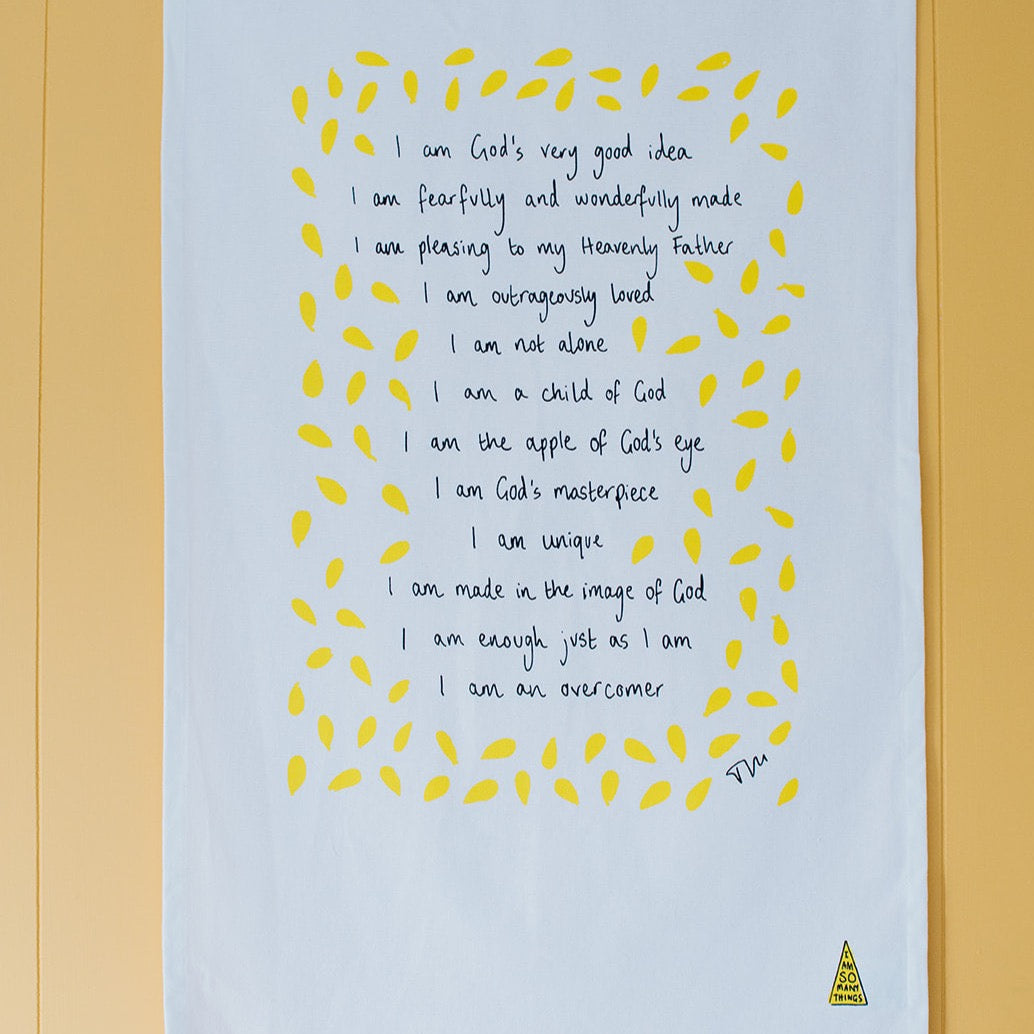 I am God's very good idea
I am fearfully and wonderfully made
I am pleasing to my Heavenly Father
I am outrageously loved
I am not alone
I am a child of God
I am the apple of God's eye
I am God's masterpiece
I am unique
I am made in the image of God
I am enough just as I am
I am an overcomer
I
AM
SO
MANY
THINGS